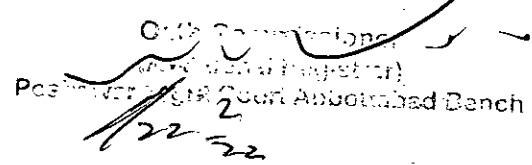 Oath Commissioner
(Additional Registrar)
Peshawar High Court Abbottabad Bench
22 2 22